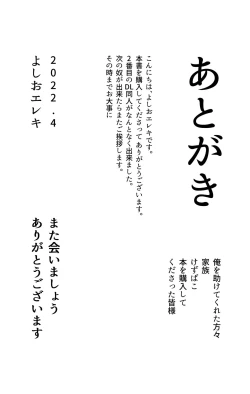 あとがき
こんにちは、よしおエレキです。
本書を購入してくださって ありがとうございます。
２番目のDL同人がなんとなく出来ました。
次の奴が出来たらまたご挨拶します。
その時までお大事に
２０２２．４
よしおエレキ
俺を助けてくれた方々
家族
けずばこ
本を購入して
くださった皆様
また会いましょう
ありがとうございます